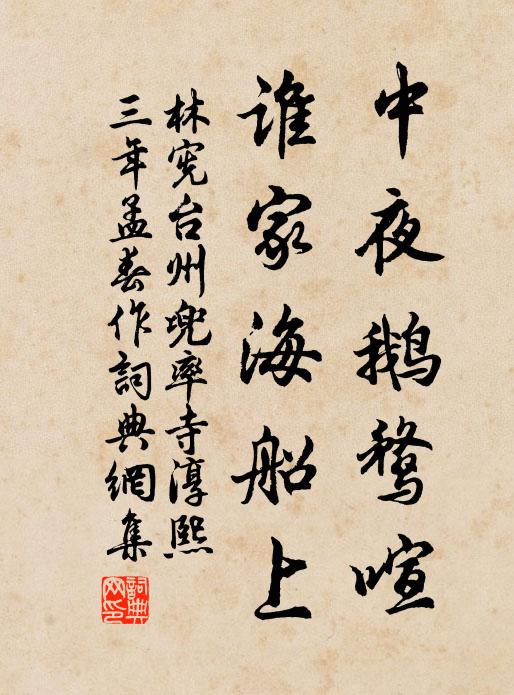 中夜鹅鹜喧
谁家海船上
林宪台州兜率寺淳熙
三年孟春作詞典網集
詞典网印